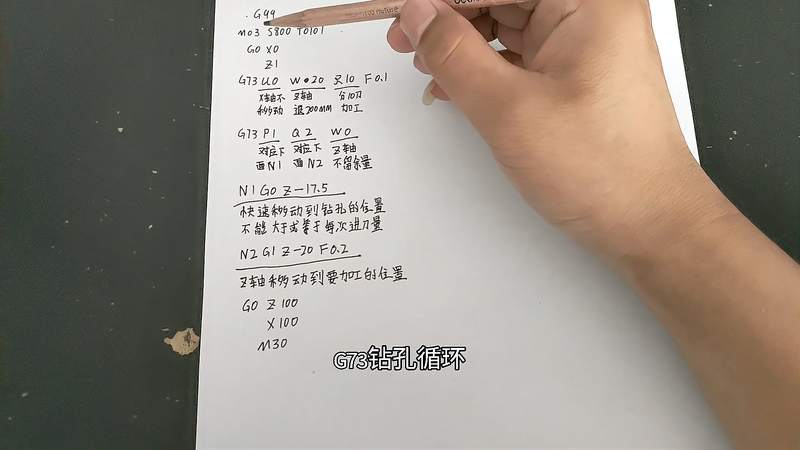 G99
M03 S800 T0101
G0 X0
Z1
G73 U0 W20 R10 F0.1
X轴不 Z轴 分10刀
移动 退200mm 加工
G73 P1 Q2 W0
对应下 对应下 Z轴
面N1 面N2 不留余量
N1 G0 Z-17.5
快速移动到钻孔的位置
不能大于或等于每次进刀量
N2 G1 Z-20 F0.2
Z轴移动到要加工的位置
G0 Z100
X100
M30
G73钻孔循环